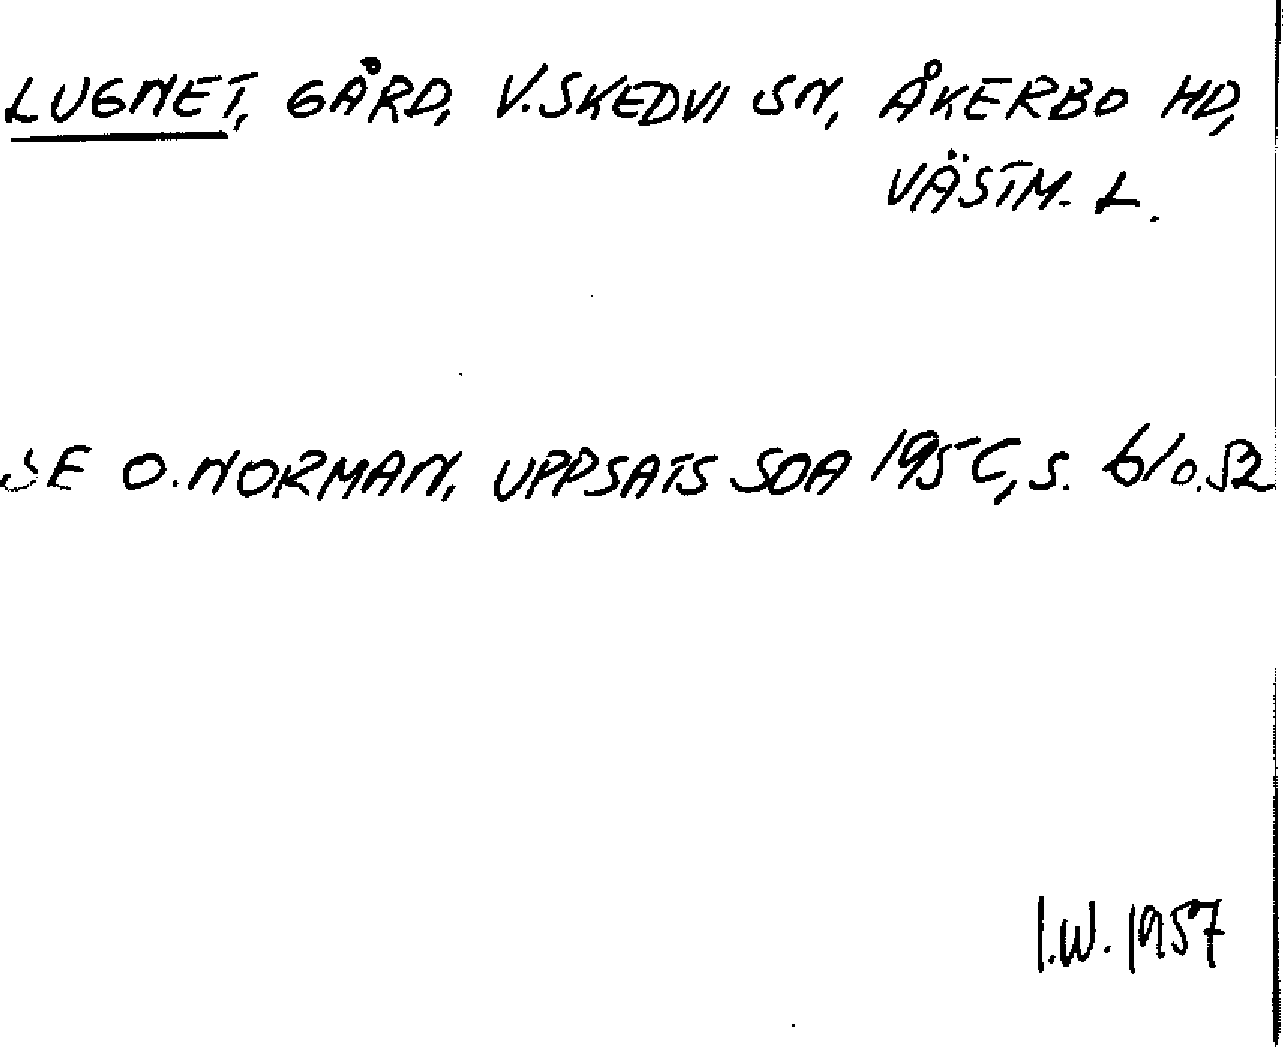 LUGNET, GÅRD, V. SKEDVI SN, ÅKERBO HD,
VÄSTM. L.
SE O. NORMAN, UPPSATS SOA 195C, S. 61 o. 52
I.W. 1957